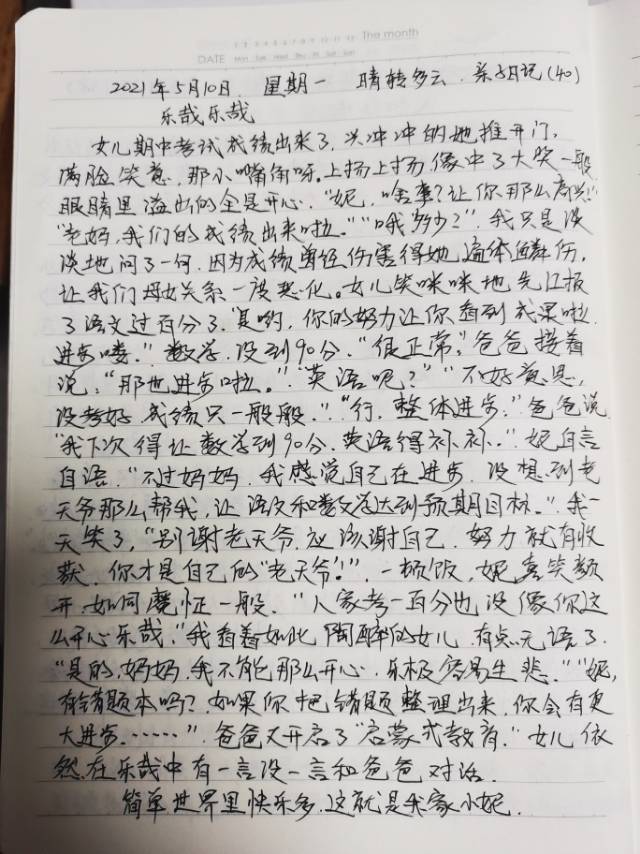 The month
DATE Mon Tue Wed Thu Fri Sat Sun
2021年5月10日. 星期一 晴转多云. 亲子日记(40)
乐哉乐哉
女儿期中考试成绩出来了,兴冲冲的她推开门,
满脸笑意,那小嘴角呀。上扬上扬,像中了大奖一般
眼睛里溢出的全是开心,“妮,啥事?让你那么高兴!”
“老妈,我们的成绩出来啦。”“哦,多少?”,我只是淡
淡地问了一句,因为成绩曾经伤害得她遍体鳞伤,
让我们母女关系一度恶化。女儿笑咪咪地先汇报
了语文过百分了.“是哟,你的努力让你看到成果啦
进步喽。”数学,没到90分.“很正常,”爸爸接着
说,“那也进步啦。”“英语呢?”“不好意思,
没考好,成绩只一般般.”“行,整体进步.”爸爸说
“我下次得让数学到90分,英语得补补.”妮自言
自语,“不过妈妈,我感觉自己在进步,没想到老
天爷那么帮我,让语文和数学达到预期目标。”我一
天笑了,“别谢老天爷,应该谢自己,努力就有收
获,你才是自己的“老天爷!”,一顿饭,妮喜笑颜
开,如同魔怔一般,“人家考一百分也没像你这
么开心乐哉,”我看着如此陶醉的女儿,有点无语了.
“是的,妈妈,我不能那么开心,乐极容易生悲。”“妮,
有错题本吗?如果你把错题整理出来,你会有更
大进步.……”爸爸又开启了“启蒙式教育,”女儿依
然在乐哉中有一言没一言和爸爸对话.
简单世界里快乐多,这就是我家小妮.